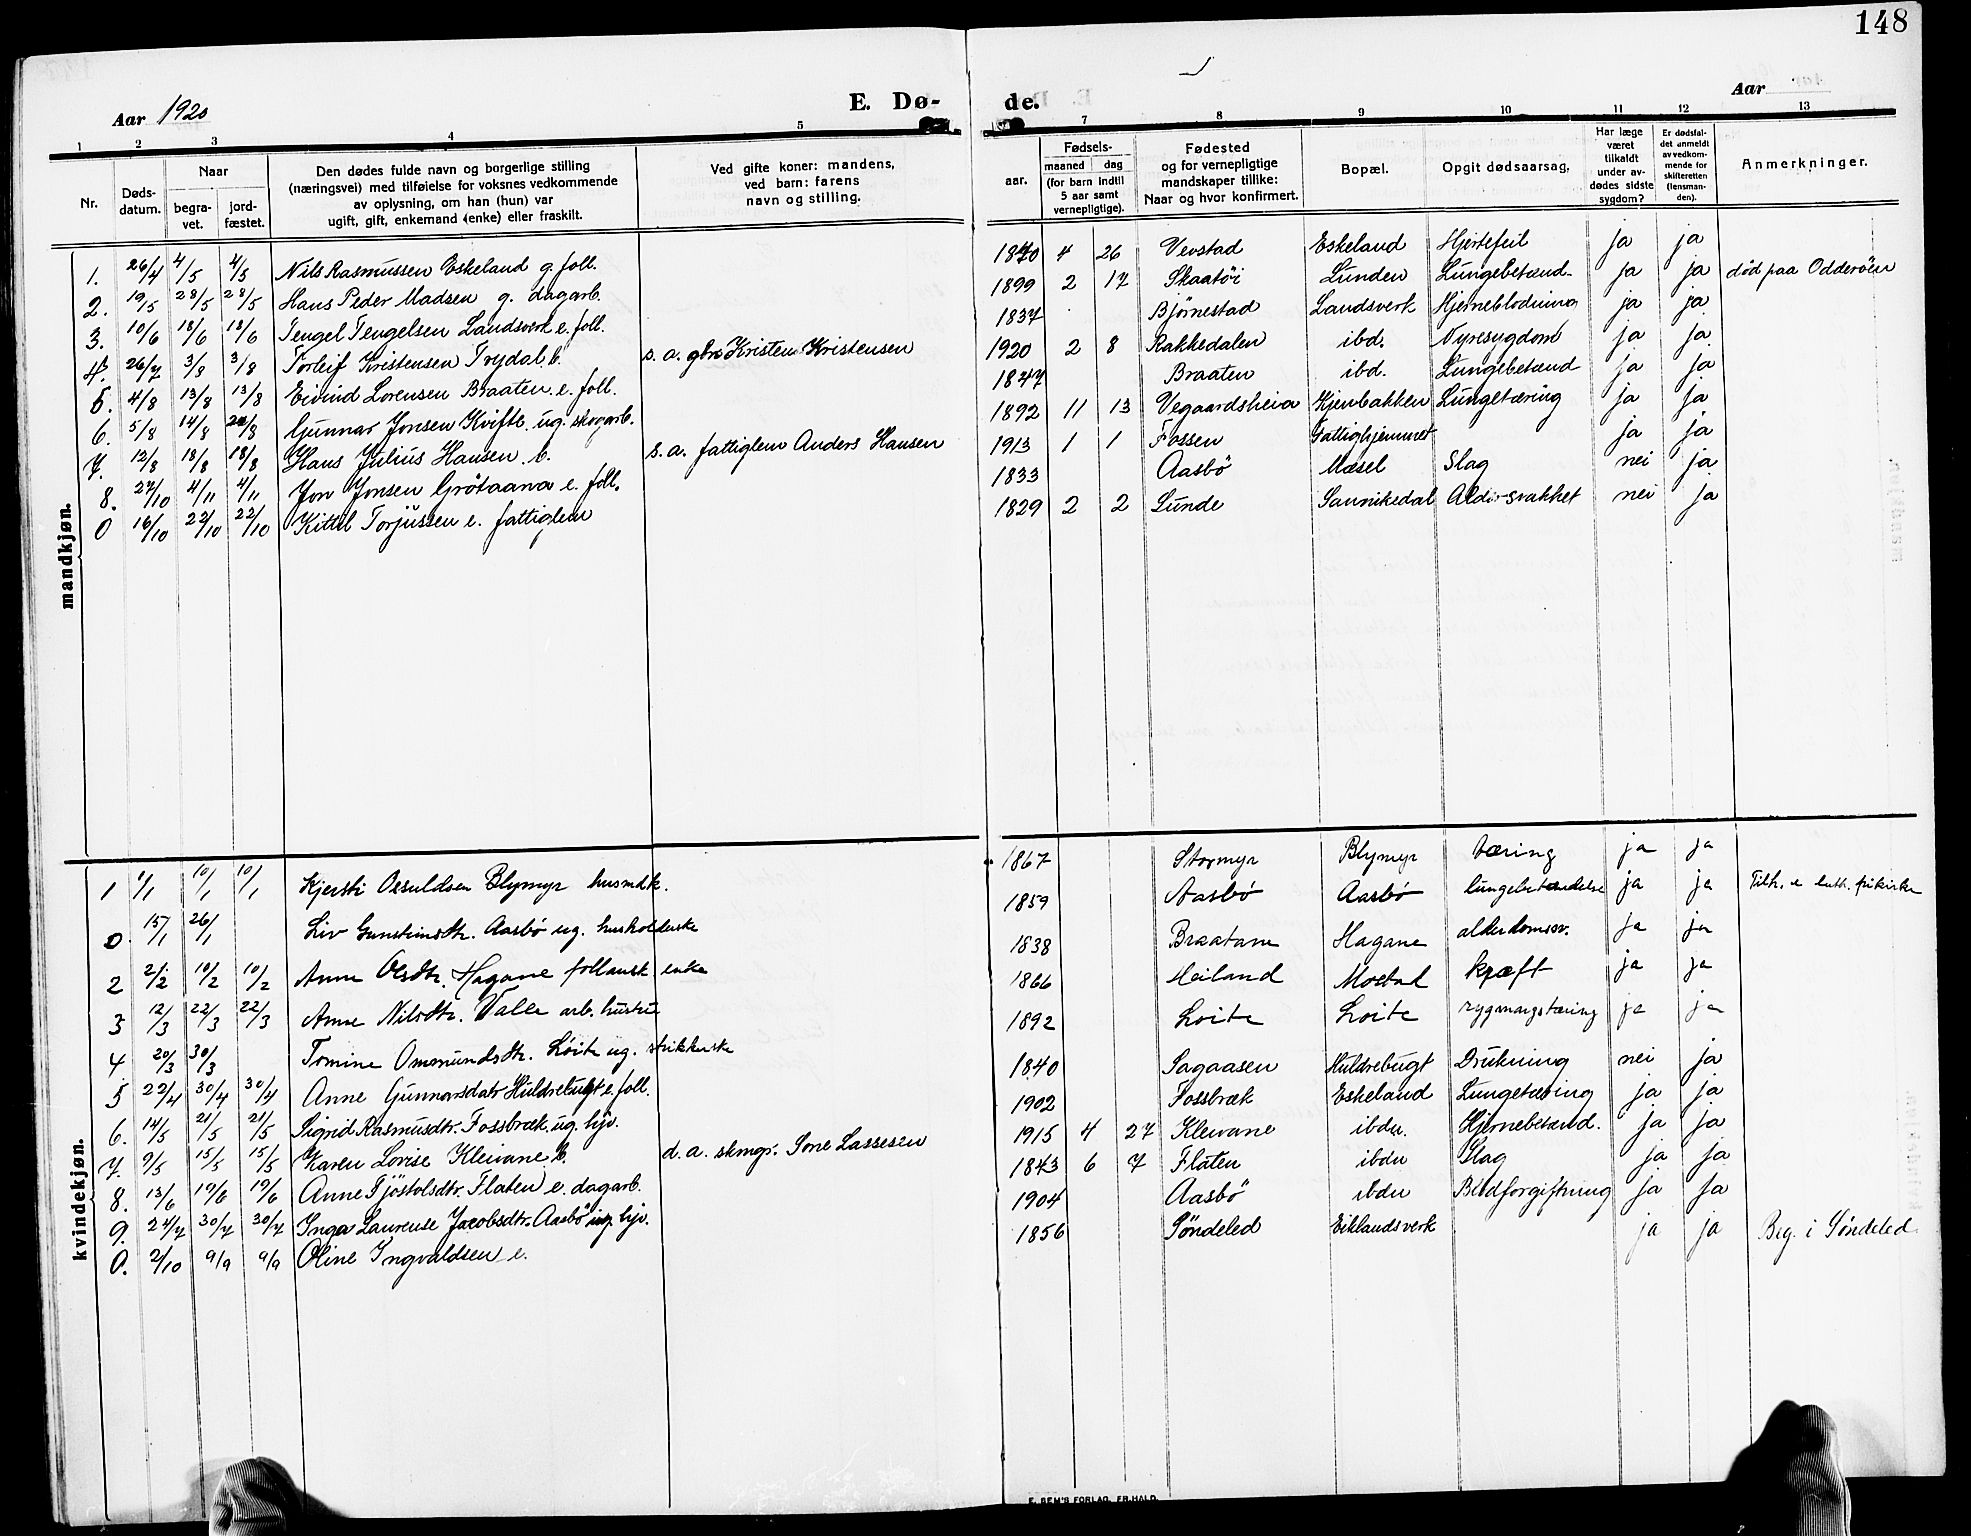 148
Aar 1920
E. Dø-
de.
Aar
1 2 3 4 5 7 8 9 10 11 12 13
Nr. Døds-datum. Naar begra-vet. jord-fæstet. Den dødes fulde navn og borgerlige stilling (næringsvei) med tilføielse for voksnes vedkommende av oplysning, om han (hun) var ugift, gift, enkemand (enke) eller fraskilt. Ved gifte koner: mandens, ved barn: farens navn og stilling. aar. Fødsels- maaned dag (for barn indtil 5 aar samt vernepligtige). Fødested og for vernepligtige mandskaper tillike: Naar og hvor konfirmert. Bopæl. Opgit dødsaarsag, Har læge været tilkaldt under av-dødes sidste sygdom? Er dødsfal-det anmeldt av vedkom-mende for skifteretten (lensman-den). Anmerkninger.
mandkjøn.
1. 26/4 4/5 4/5 Nils Rasmussen Eskeland g. foll. 1840 4 26 Vevstad Eskeland Hjertefeil ja ja
2. 19/5 28/5 28/5 Hans Peder Madsen g. dagarb. 1899 2 17 Skaatöi Lunden Lungebetænd- ja ja död paa Odderöen
3. 10/6 18/6 18/6 Tengel Tengelsen Landsverk e. foll. 1837 Björnestad Landsverk Hjerneblödning ja ja
4. 26/7 3/8 3/8 Torleif Kristensen Trydal b. s. a. gbr Kristen Kristensen 1920 2 8 Rakkedalen ibd. Nyresygdom ja ja
5. 4/8 13/8 13/8 Eivind Lorensen Braaten e. foll. 1847 Braaten ibd. Lungebetænd ja ja
6. 5/8 14/8 /8 Gunnar Jonsen Kvifte ug. skogarb. 1892 11 13 Vegaardsheia Kjenbakken Lungetæring ja ja
7. 12/8 18/8 18/8 Hans Julius Hansen b. s. a. fattiglem Anders Hansen 1913 1 1 Fossen Fattighjemmet ja ja
8. 27/10 4/11 4/11 Jon Jonsen Grötaana e. foll. 1833 Aasbö Mæsel Slag nei ja
0 16/10 22/10 22/10 Kittil Torjussen e. fattiglem 1829 2 2 Lunde Sannikedal Aldersvakhet nei ja
kvindekjøn.
1 1/1 10/1 10/1 Kjersti Osuldsen Blymyr husmdk. 1867 Stormyr Blymyr tæring ja ja
0 15/1 26/1 Liv Gunsteinsdtr. Aasbø ug. husholderske 1859 Aasbø Aasbø lungebetændelse ja ja Tilh. e luth. frikirke
2 2/2 10/2 10/2 Anne Olsdtr. Hagane follaugst enke 1838 Braatane Hagane alderdomssv. ja ja
3 12/3 22/3 22/3 Anne Nilsdtr. Valle arb. hustru 1866 Heiland Mostad kræft ja ja
4 20/3 30/3 Tomine Ommundsdtr. Löite ug. strikkerske 1892 Loite Loite rygmargstæring ja ja
5 22/4 30/4 30/4 Anne Gunnarsdatr Huldrebugt e. foll. 1840 Sagaasen Huldrebugt Drukning nei ja
6. 14/5 21/5 21/5 Sigrid Rasmusdtr. Fossbræk ug. hjv. 1902 Fossbræk Eskeland Lungetæring ja ja
7. 9/5 15/5 15/5 Karen Lovise Kleivane b. d. a. skmgr. Sone Lassesen 1915 4 27 Kleivane ibdn. Hjernebetænd. ja ja
8. 13/6 19/6 19/6 Anne Tjöstolsdtr. Flaten e. dagarb. 1843 6 7 Flaten ibdn Slag ja ja
9. 24/7 30/7 30/7 Inga Laurense Jacobsdtr. Aasbö ug hjv. 1904 Aasbö ibdn Blodforgiftning ja ja
0. 2/10 9/9 9/9 Oline Ingvaldsen e. 1856 Söndeled Eiklandsverk ja ja Beg. i Söndeled
E. SEM'S FORLAG, FR.HALD.